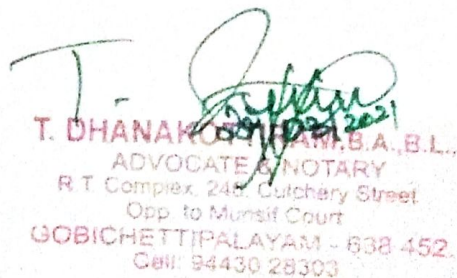 T.
T. DHANAKOTTI RAM, B.A., B.L.,
ADVOCATE & NOTARY
R.T. Complex, 248, Cutchery Street
Opp. to Munsif Court
GOBICHETTIPALAYAM - 638 452.
Cell: 94430 28303